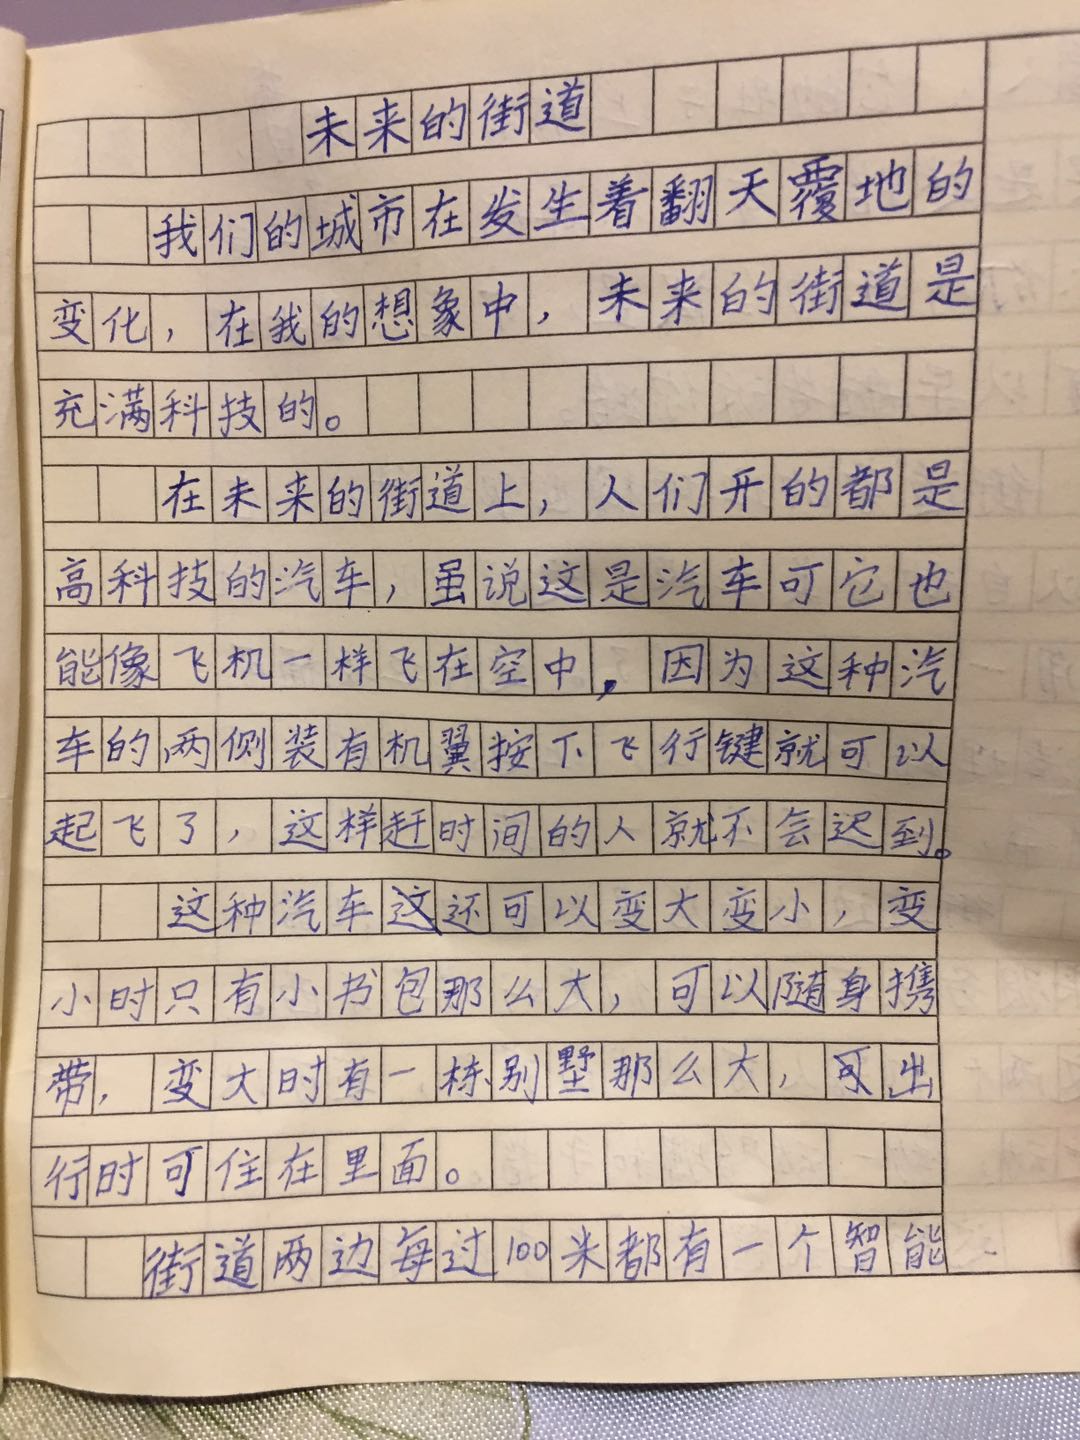 未来的街道
我们的城市在发生着翻天覆地的
变化，在我的想象中，未来的街道是
充满科技的。
在未来的街道上，人们开的都是
高科技的汽车，虽说这是汽车可它也
能像飞机一样飞在空中，因为这种汽
车的两侧装有机翼按下飞行键就可以
起飞了，这样赶时间的人就不会迟到。
这种汽车这还可以变大变小，变
小时只有小书包那么大，可以随身携
带，变大时有一栋别墅那么大，可出
行时可住在里面。
街道两边每过100米都有一个智能